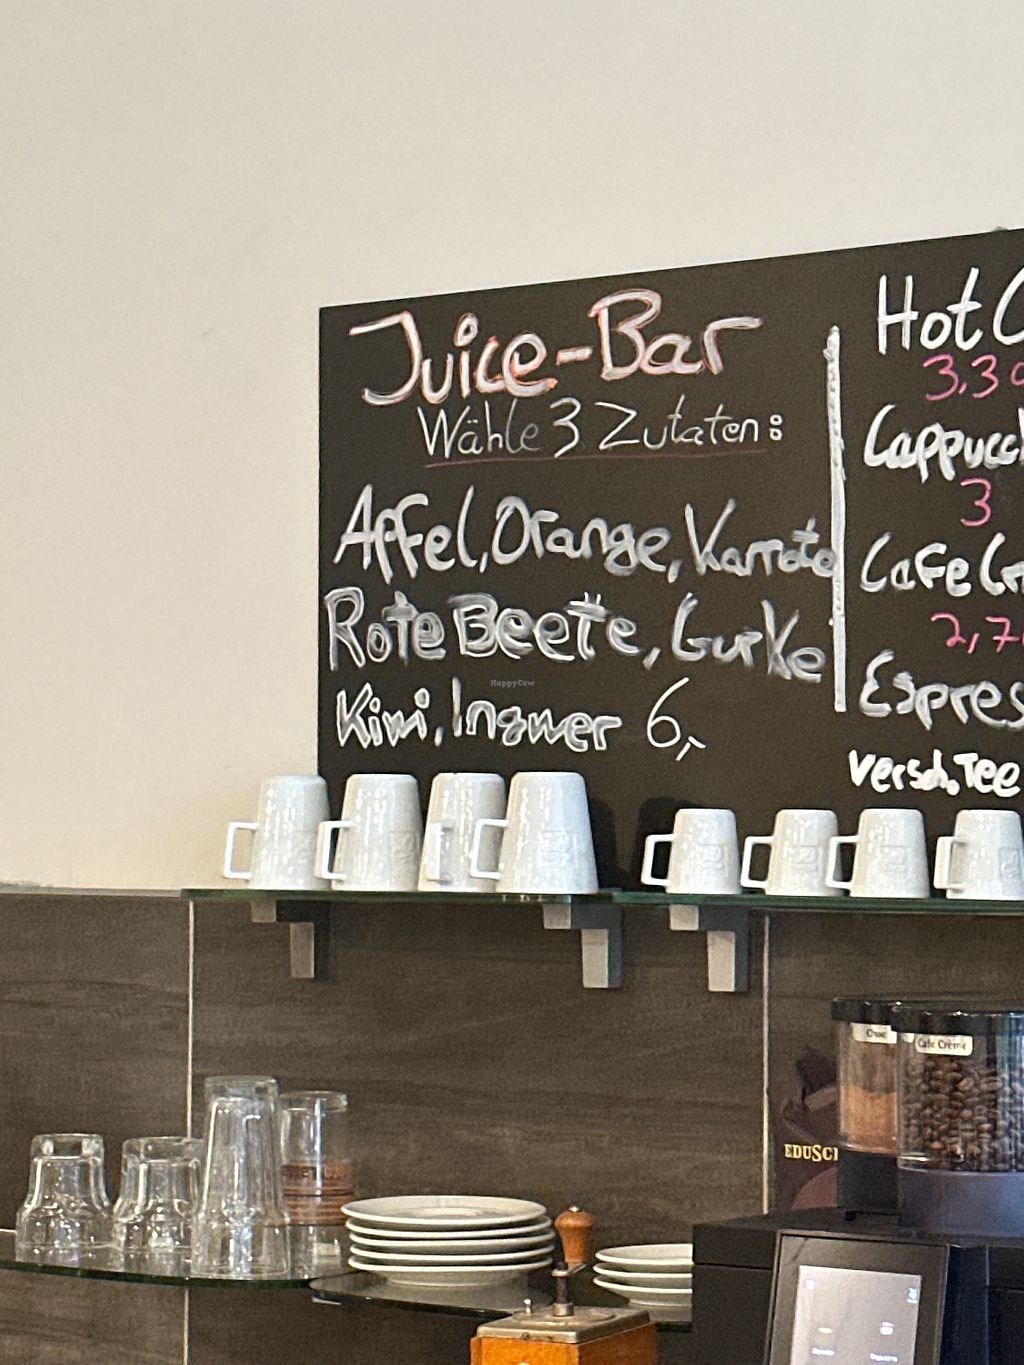 Juice-Bar
Wähle 3 Zutaten:
Apfel, Orange, Karrotte
Rote Beete, Gurke
Kiwi, Ingwer 6,-
Hot
3,3
Cappucc
3
Cafe Cr
2,7
Espres
versch. Tee
HappyCow
Cafe Crème
EDUSC